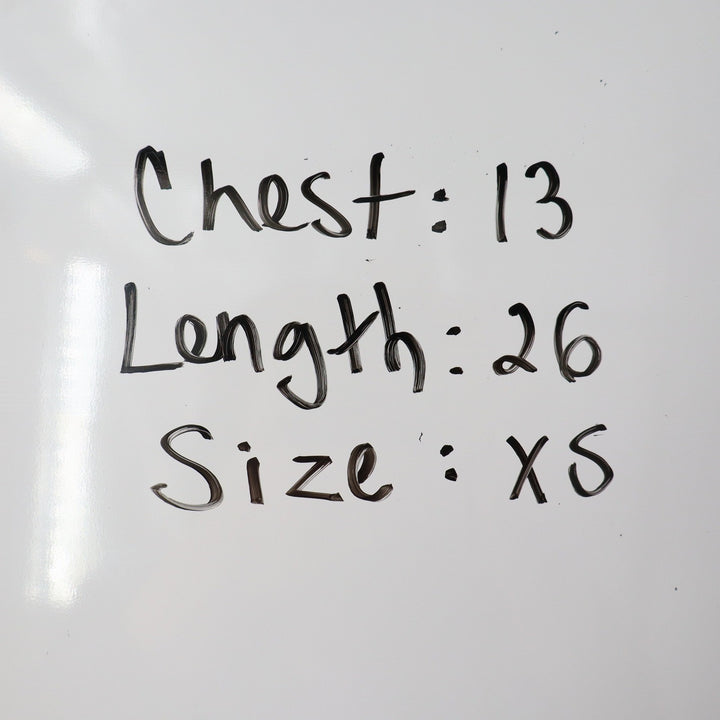 Chest: 13
Length: 26
Size: XS